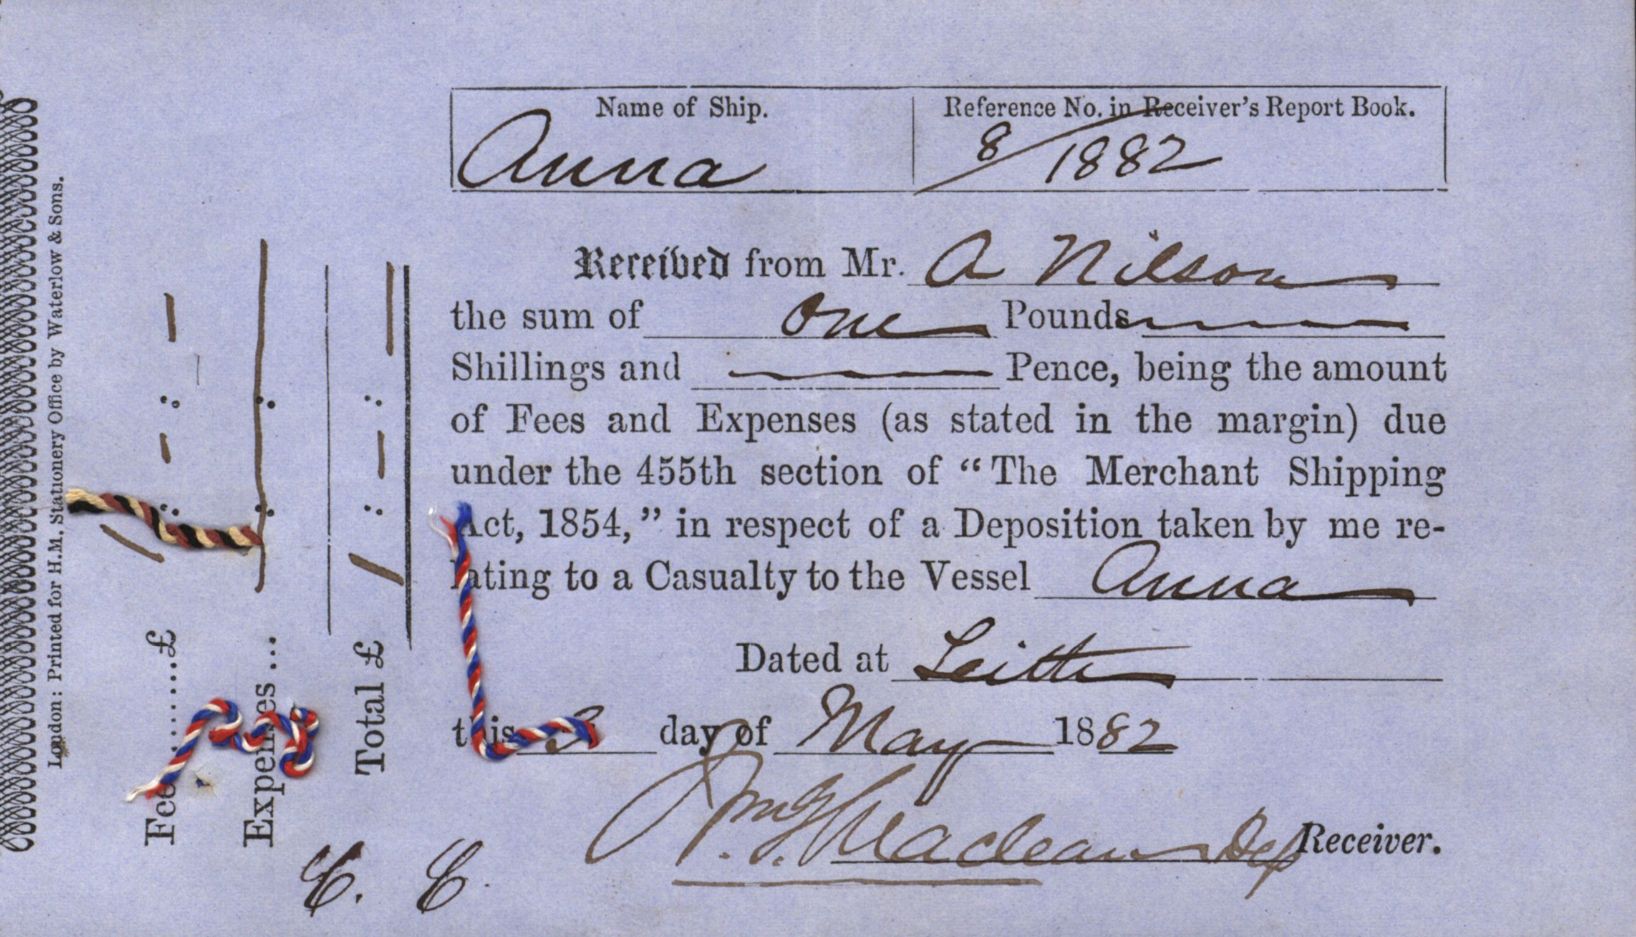 Name of Ship.
Anna
Reference No. in Receiver's Report Book.
8/1882
Received from Mr. A Nilson
the sum of One Pounds
Shillings and Pence, being the amount
of Fees and Expenses (as stated in the margin) due
under the 455th section of “The Merchant Shipping
Act, 1854,” in respect of a Deposition taken by me re-
lating to a Casualty to the Vessel Anna
Dated at Leith
this 3 day of May 1882
Maclean Dep Receiver.
C. C.
London: Printed for H.M. Stationery Office by Waterlow & Sons.
Fee........£ 1 : - : -
Expenses ... : :
Total £ 1 : - : -